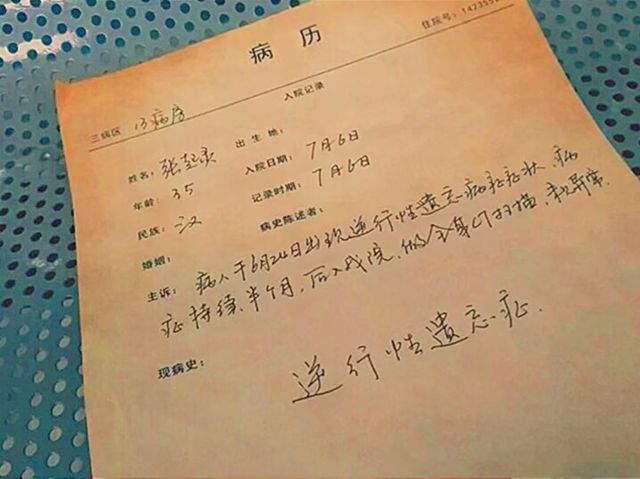 住院号：1473555
病 历
入院记录
三病区 13病房
姓名：张起灵 出 生 地：
年龄：35 入院日期：7月6日
民族：汉 记录时期：7月6日
婚姻： 病史陈述者：
主诉：病人于6月24日出现逆行性遗忘病症症状，病
症持续半个月，后入我院，做全身CT扫描，未见异常.
现病史：
逆行性遗忘症.